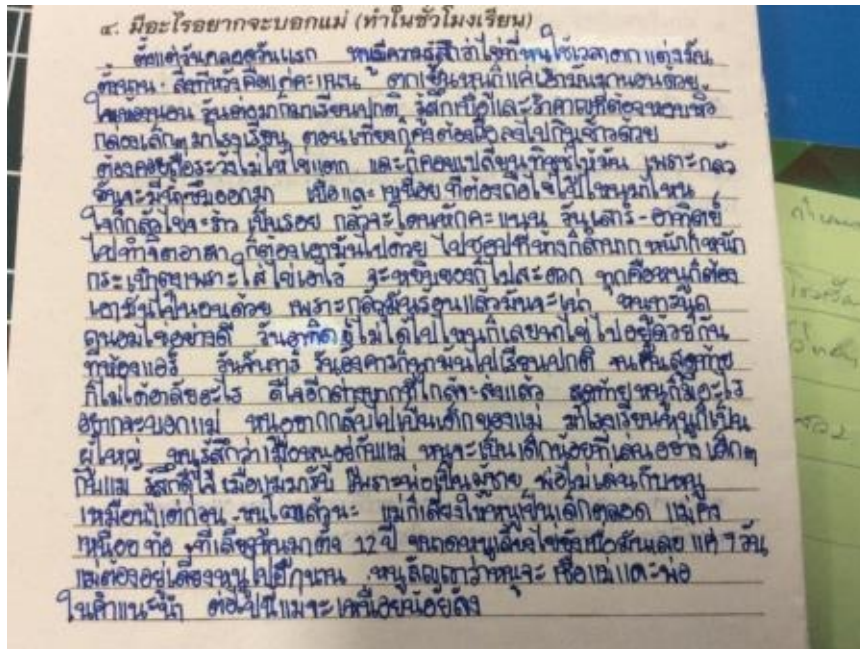 ๔. มีอะไรอยากจะบอกแม่ (ทำในชั่วโมงเรียน)
ตั้งแต่วันคลอดวันแรก หนูมีความรู้สึกว่าไข่ที่หนูใช้เวลาตกแต่งมัน
ตั้งนาน สิ่งที่หวังคือแค่คะแนน ตกเย็นหนูก็แค่เอามันมานอนด้วย
ในห้องนอน วันต่อมาก็มาเรียนปกติ รู้สึกเบื่อและรำคาญที่ต้องหอบหิ้ว
กล่องเล็กๆ มาโรงเรียน ตอนเที่ยงก็ต้องถือลงไปกินข้าวด้วย
ต้องคอยถือระวังไม่ให้ไข่แตก และก็คอยเปลี่ยนทิชชูให้มัน เพราะกลัว
มันจะมีน้ำซึมออกมา เบื่อและเหนื่อย ที่ต้องถือไข่ไปไหนมาไหน
ใจก็กลัวไข่จะร้าว เป็นรอย กลัวจะโดนหักคะแนน วันเสาร์-อาทิตย์
ไปทำจิตอาสา ก็ต้องเอามันไปด้วย ไปช้อปที่ห้างก็ลำบาก หนักก็หนัก
กระเป๋าตุงเพราะใส่ไข่เอาไว้ จะหยิบของก็ไม่สะดวก ทุกคืนหนูก็ต้อง
เอามันไปนอนด้วย เพราะกลัวมันร้อนแล้วมันจะเน่า หนูทะนุ
ถนอมไข่อย่างดี วันอาทิตย์ไม่ได้ไปไหนก็เลยพาไข่ไปอยู่ด้วยกัน
ที่ห้องแอร์ วันจันทร์ วันอังคารก็พามันไปเรียนปกติ จนคืนสุดท้าย
ก็ไม่ได้อาลัยอะไร ดีใจอีกต่างหากที่ใกล้จะส่งแล้ว สุดท้ายหนูก็มีอะไร
อยากจะบอกแม่ หนูอยากกลับไปเป็นเด็กของแม่ มาโรงเรียนหนูก็เป็น
ผู้ใหญ่ หนูรู้สึกว่าเมื่อหนูอยู่กับแม่ หนูจะเป็นเด็กน้อยที่เล่นอย่างเด็กๆ
กับแม่ รู้สึกดีใจ เมื่อแม่มารับ เพราะพ่อเป็นผู้ชาย พ่อไม่เล่นกับหนู
เหมือนแต่ก่อน หนูโตแล้วนะ แม่ก็เลี้ยงให้หนูเป็นเด็กตลอด แม่คง
เหนื่อย ท้อ ที่เลี้ยงหนูมาตั้ง 12 ปี ขนาดหนูเลี้ยงไข่ยังเบื่อมันเลย แค่ 7 วัน
แม่ต้องอยู่เลี้ยงหนูไปอีกนาน หนูสัญญาว่าหนูจะ เชื่อแม่และพ่อ
ในคำแนะนำ ต่อไปนี้แม่จะเหนื่อยน้อยลง